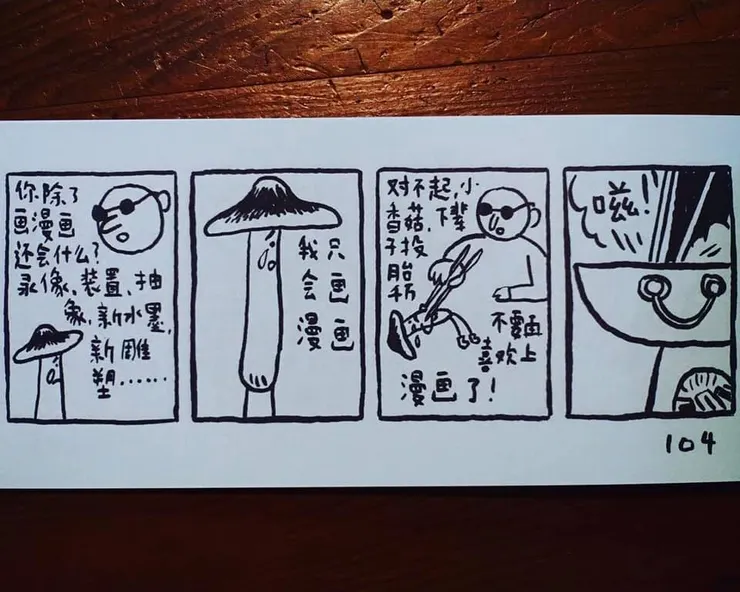 你除了
画漫画
还会什么?
录像、装置、抽
象、新水墨、
新雕
塑……
我只
会画
漫画
对不起,小
香菇,下辈
子投
胎
千万
不要再
喜欢上
漫画了!
嗞!
104